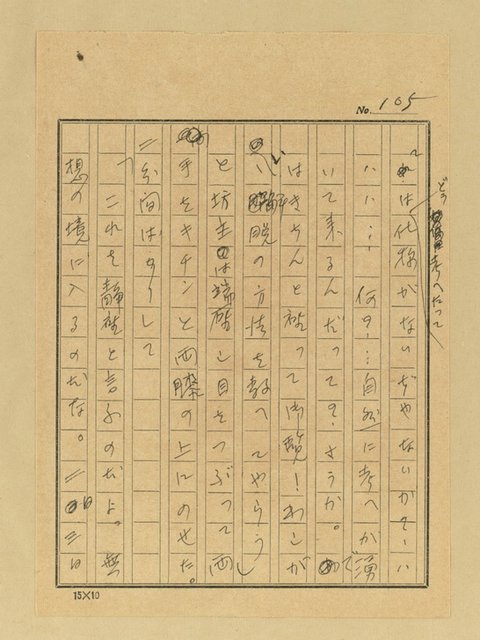 No. 105
どう考へたって
は仕様がないぢやないかて
ハハ…何?…自然に考へが湧
いて来るんだって?さうか。で
はきちんと坐って御覧!わしが
解脱の方法を教へてやらう」
と坊主は端坐し目をつぶって両
手をキチンと両膝の上にのせた。
二分間ばかりして
「これを静坐と言ふのだよ。無
想の境に入るのだな。二日三日
15×10